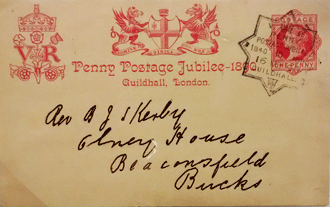 V R
Penny Postage Jubilee-1890
Guildhall, London.
POSTAGE
ONE PENNY
1840
16
GUILDHALL
Rev B J S Kerby
House
Beaconsfield
Bucks